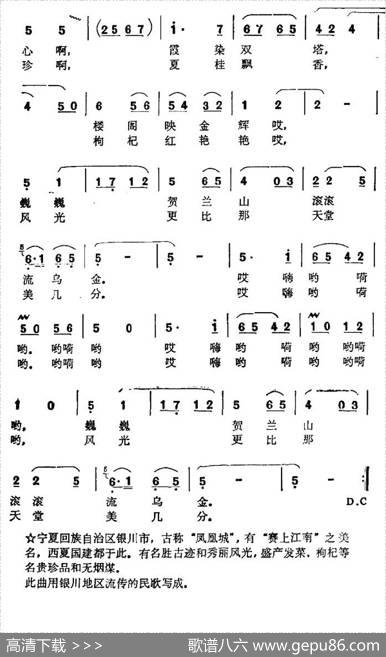 5 5 | (2567) | i· 7 | 67 65 | 5 -
心 啊, 霞 染 双 塔,
珍 啊, 夏 桂 飘 香,
4 50 | 6 56 | 54 32 | 1 2 | 2 - |
楼 阁 映 金 辉 哎,
枸 杞 红 艳 艳 哎,
5 1 | 1712 | 5 65 | 4 03 | 22 5 |
巍 巍 贺 兰 山 滚滚
风 光 更 比 那 天堂
6·1 65 | 5 - | 5 - | 5· i | 65 42 |
流 乌 金。 哎 嗨 哟 嗬
美 几 分。 哎 嗨 哟 嗬
50 56 | 5 0 | 5· i | 65 42 | 10 12 |
哟。哟嗬 哟 哎 嗨 哟 嗬 哟 哟嗬
哟。哟嗬 哟 哎 嗨 哟 嗬 哟 哟嗬
1 0 | 5 1 | 1712 | 5 65 | 4 03 |
哟, 巍 巍 贺 兰 山
哟, 风 光 更 比 那
2 2 5 | 6·1 65 | 5 - | 5 - :|
滚 滚 流 乌 金。 D.C
天 堂 美 几 分。
☆宁夏回族自治区银川市,古称“凤凰城”,有“赛上江南”之美
名,西夏国建都于此。有名胜古迹和秀丽风光,盛产发菜、枸杞等
名贵珍品和无烟煤。
此曲用银川地区流传的民歌写成。
高清下载 >>> 歌谱八六 www.gepu86.com